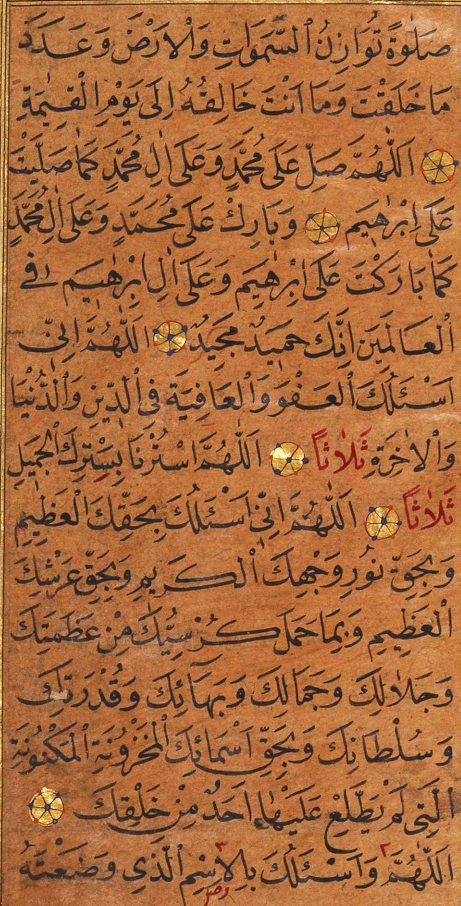 صَلٰوةً تُوَازِنُ ٱلسَّمٰوَاتِ وَٱلْاَرْضَ وَعَدَدَ
مَا خَلَقْتَ وَمَا اَنْتَ خَالِقُهُ اِلَى يَوْمِ الْقِيٰمَةِ
اَللّٰهُمَّ صَلِّ عَلَى مُحَمَّدٍ وَعَلَى اٰلِ مُحَمَّدٍ كَمَا صَلَّيْتَ
عَلَى اِبْرٰهِيمَ وَبَارِكْ عَلَى مُحَمَّدٍ وَعَلَى اٰلِ مُحَمَّدٍ
كَمَا بَارَكْتَ عَلَى اِبْرٰهِيمَ وَعَلَى اٰلِ اِبْرٰهِيمَ فِي
الْعَالَمِينَ اِنَّكَ حَمِيدٌ مَجِيدٌ اَللّٰهُمَّ اِنِّي
اَسْئَلُكَ ٱلْعَفْوَ وَٱلْعَافِيَةَ فِي ٱلدِّينِ وَٱلدُّنْيَا
وَٱلْاٰخِرَةِ ثَلَاثًا اَللّٰهُمَّ اسْتُرْنَا بِسِتْرِكَ ٱلْجَمِيلِ
ثَلَاثًا اَللّٰهُمَّ اِنِّي اَسْئَلُكَ بِحَقِّكَ الْعَظِيمِ
وَبِحَقِّ نُورِ وَجْهِكَ الْكَرِيمِ وَبِحَقِّ عَرْشِكَ
الْعَظِيمِ وَبِمَا حَمَلَ كُرْسِيُّكَ مِنْ عَظَمَتِكَ
وَجَلَالِكَ وَجَمَالِكَ وَبَهَائِكَ وَقُدْرَتِكَ
وَسُلْطَانِكَ وَبِحَقِّ اَسْمَائِكَ الْمَخْزُونَةِ الْمَكْنُونَةِ
الَّتِي لَمْ يَطَّلِعْ عَلَيْهَا اَحَدٌ مِنْ خَلْقِكَ
اَللّٰهُمَّ ٢ وَاَسْئَلُكَ ٣ بِالْاِسْمِ الَّذِي وَضَعْتَهُ